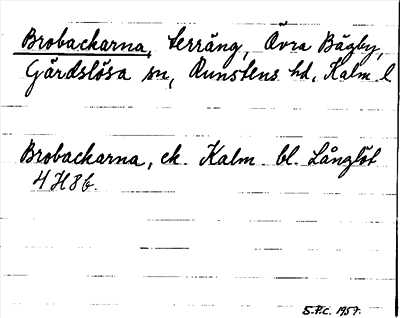 Brobackarna, terräng, Övra Bägby,
Gärdslösa sn, Runstens hd, Kalm. l
Brobackarna, ek. Kalm. bl. Långlöt
4 H 8 b.
S.P.C. 1957.